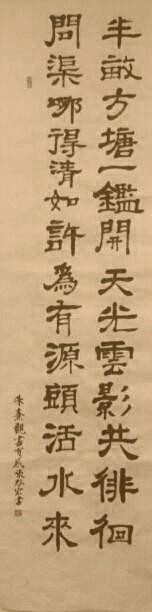 半畝方塘一鑑開天光雲影共徘徊
問渠哪得清如許為有源頭活水來
朱熹觀書有感